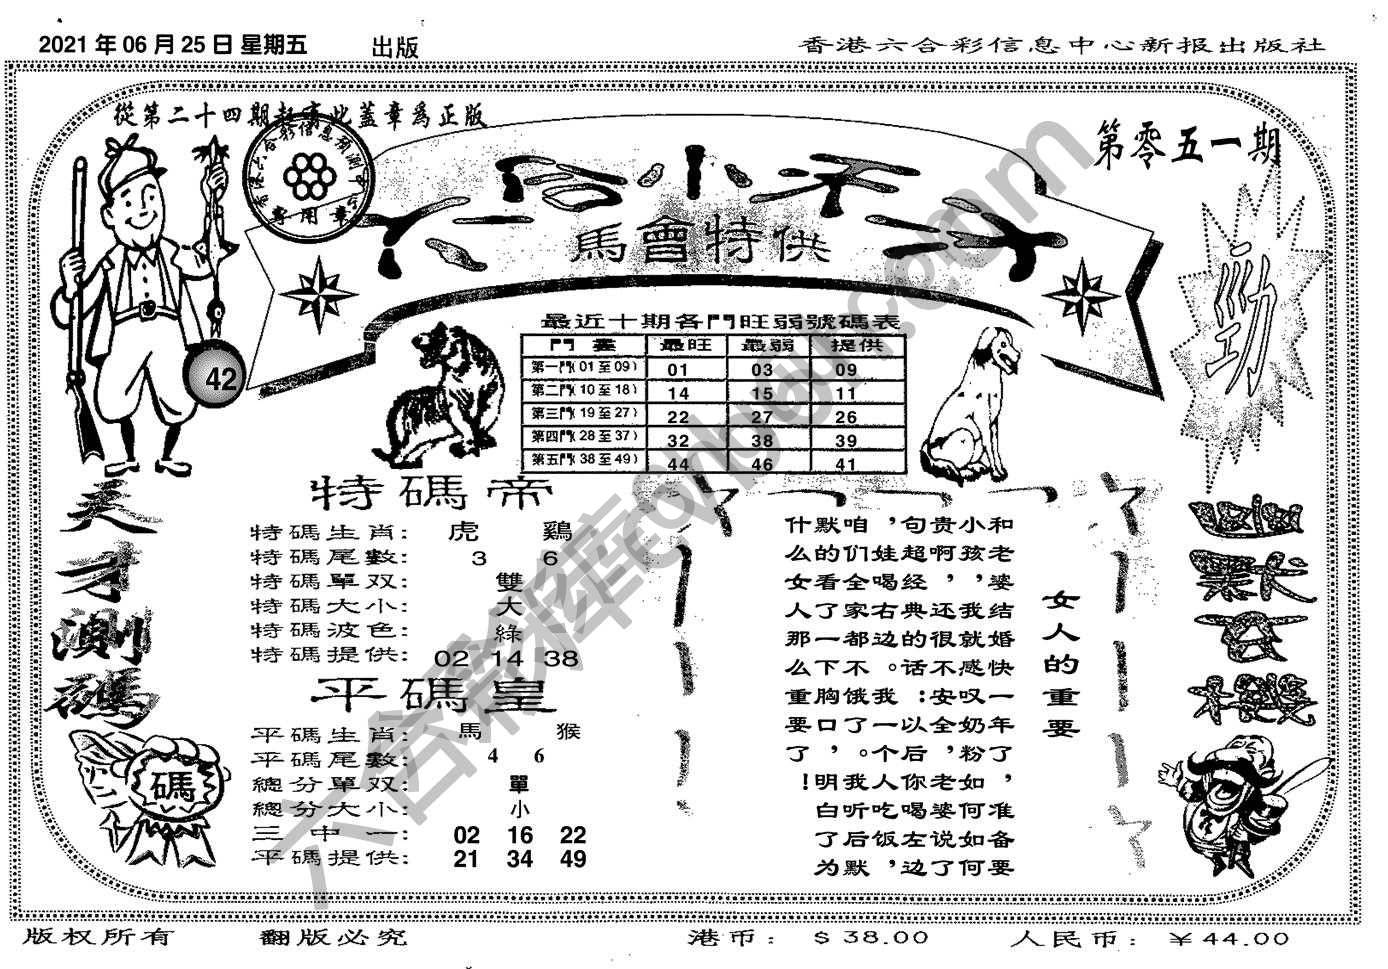 2021 年 06 月 25 日 星期五 出版
香港六合彩信息中心新报出版社
從第二十四期起蓋此蓋章爲正版
第零五一期
六合小子
馬會特供
專用章
勁
42
最近十期各門旺弱號碼表
門 最旺 最弱 提供
第一門(01至09) 01 03 09
第二門(10至18) 14 15 11
第三門(19至27) 22 27 26
第四門(28至37) 32 38 39
第五門(38至49) 44 46 41
天才測碼
碼
特碼帝
特碼生肖: 虎 鷄
特碼尾數: 3 6
特碼單双: 雙
特碼大小: 大
特碼波色: 綠
特碼提供: 02 14 38
平碼皇
平碼生肖: 馬 猴
平碼尾數: 4 6
總分單双: 單
總分大小: 小
三中一: 02 16 22
平碼提供: 21 34 49
女人的重要
和老婆结婚快一年了，准备要
小孩，我就感叹奶粉如何如何
贵啊，还很不安全，老婆说了
句超经典的话：以后你喝左边
，娃喝右边。我一个人吃饭，
咱们全家都不饿了。我听后默
默的看了一下胸口，明白了为
什么女人那么重要了！
幽默玄機
六合彩庫 cnhvdh.com
版权所有 翻版必究 港币: $38.00 人民币: ￥44.00